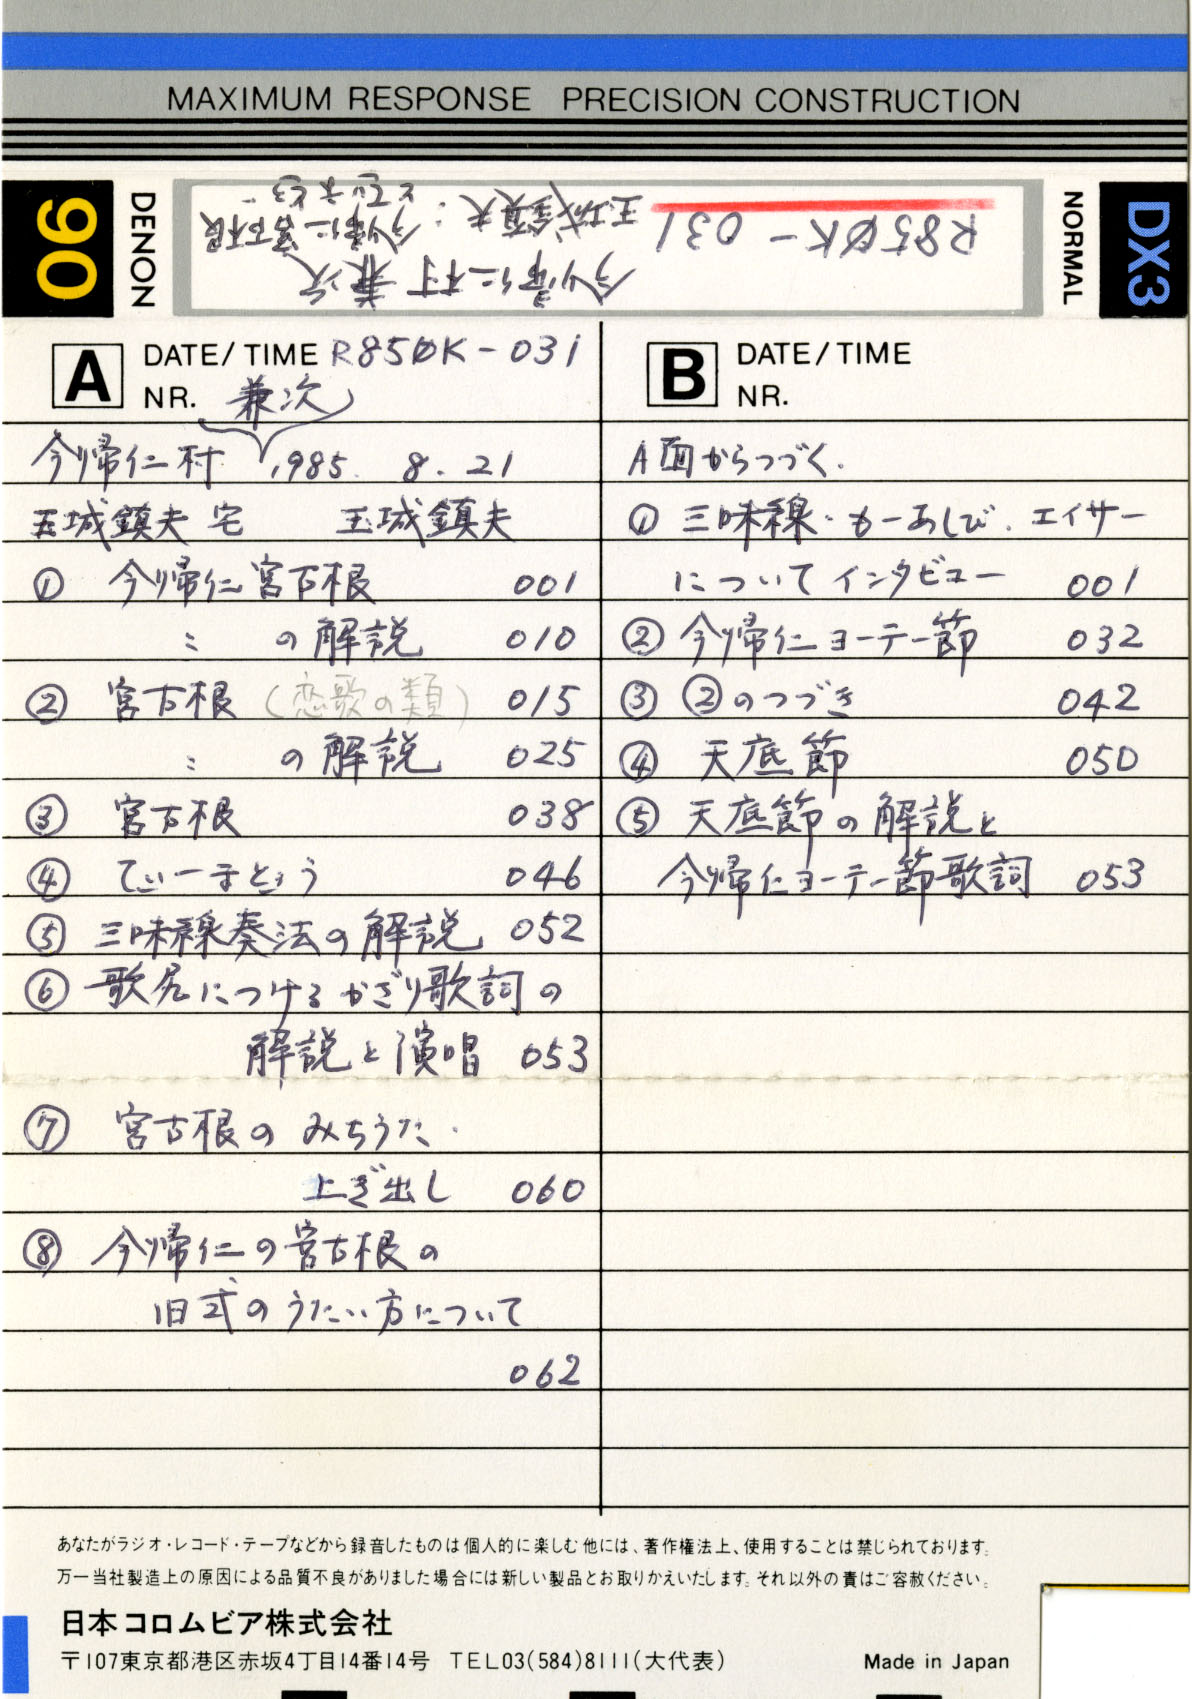 MAXIMUM RESPONSE PRECISION CONSTRUCTION
90
DENON
R85ØK-031
今帰仁村 兼次
玉城鎮夫:今帰仁宮古根
NORMAL
DX3
A DATE/TIME R85ØK-031
NR. 兼次
今帰仁村 1985. 8. 21
玉城鎮夫宅 玉城鎮夫
① 今帰仁宮古根 001
〃 の解説 010
② 宮古根 (恋歌の類) 015
〃 の解説 025
③ 宮古根 038
④ てぃーまとぅう 046
⑤ 三味線奏法の解説 052
⑥ 歌尻につけるかざり歌詞の
解説と演唱 053
⑦ 宮古根の みちうた.
上ぎ出し 060
⑧ 今帰仁の宮古根の
旧式のうたい方について
062
B DATE/TIME
NR.
A面からつづく.
① 三味線・もーあしび.エイサー
についてインタビュー 001
② 今帰仁ヨーテー節 032
③ ②のつづき 042
④ 天底節 050
⑤ 天底節の解説と
今帰仁ヨーテー節歌詞 053
あなたがラジオ・レコード・テープなどから録音したものは個人的に楽しむ他には、著作権法上、使用することは禁じられております。
万一当社製造上の原因による品質不良がありました場合には新しい製品とお取りかえいたします。それ以外の責はご容赦ください。
日本コロムビア株式会社
〒107東京都港区赤坂4丁目14番14号 TEL03(584)8111(大代表)
Made in Japan